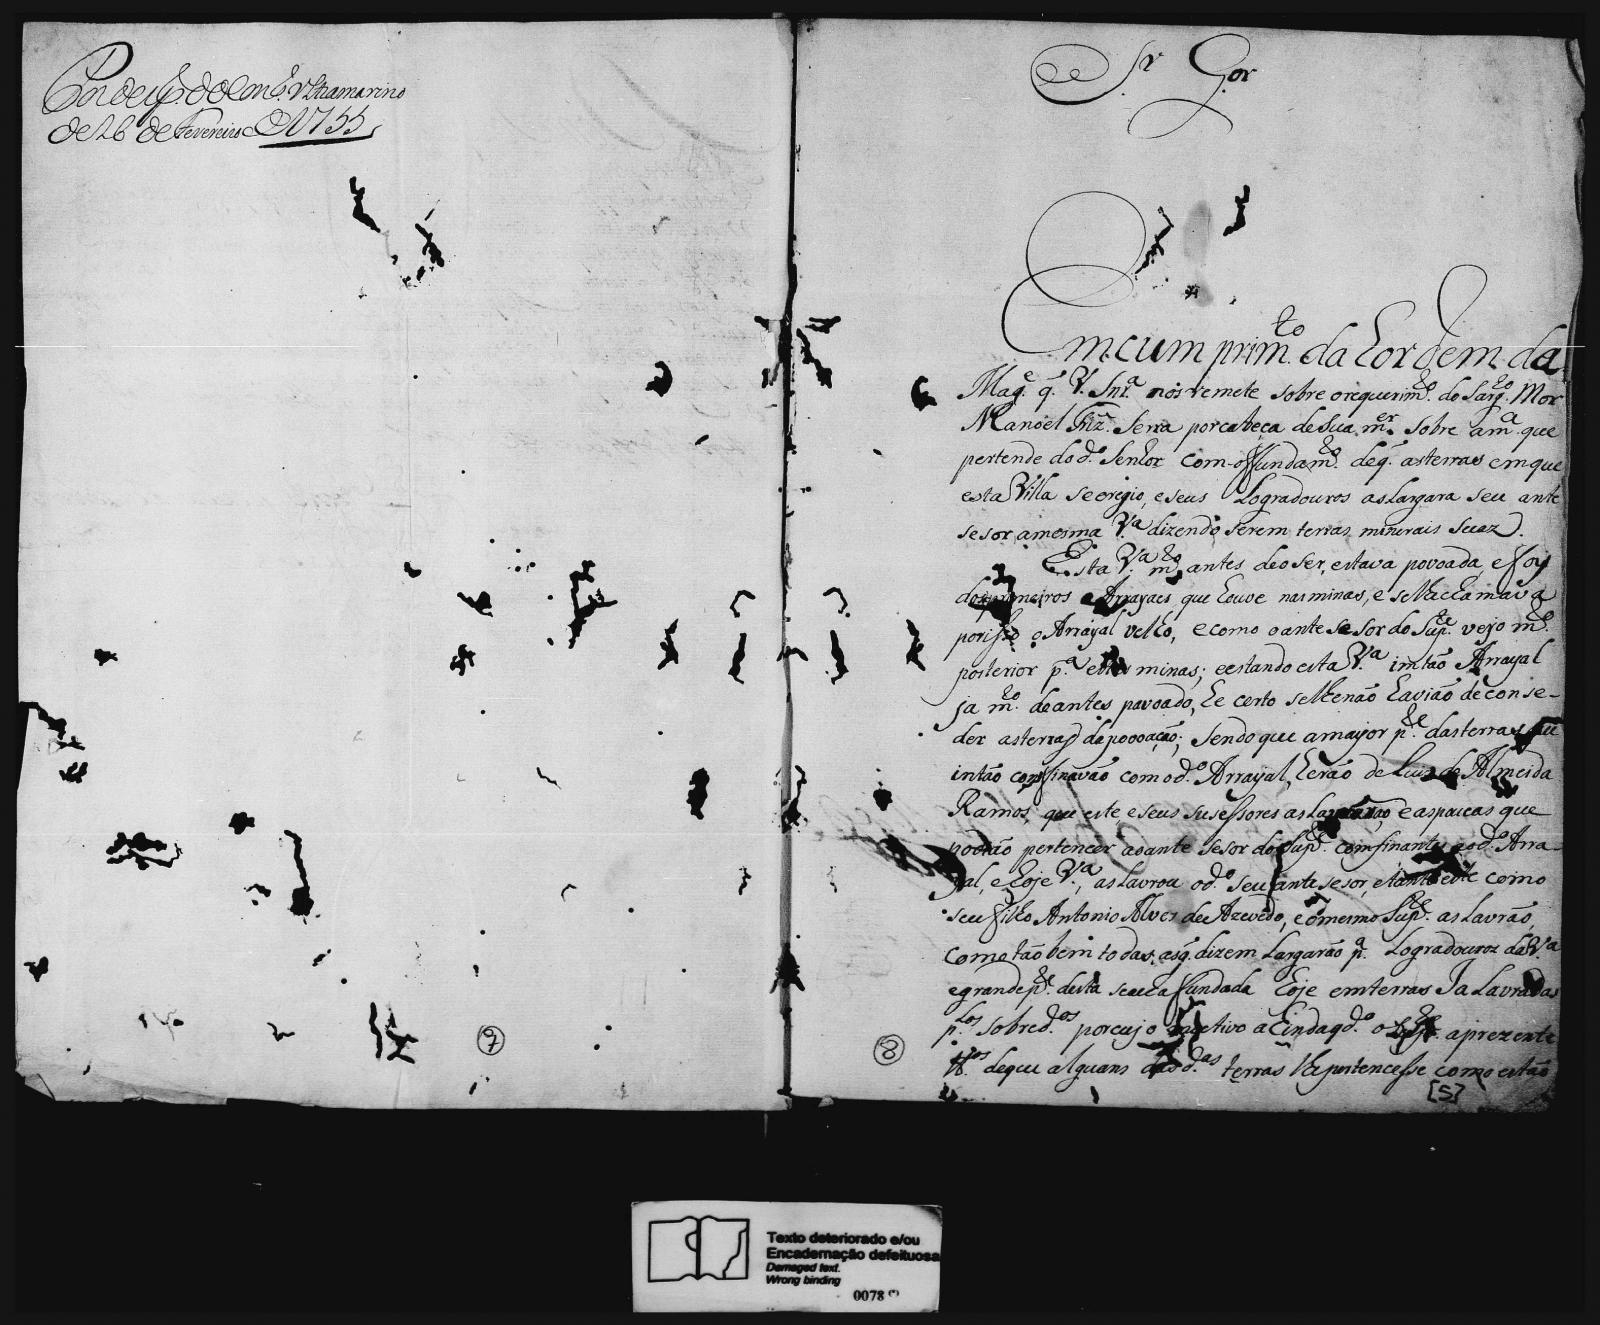 de 26 de Fevereiro de 1755
7
Sr. Gor
Em cumprimto. da hordem da
Mage. q. V. Snra. nos remete sobre o requerimto. do Sargto. Mor
Manoel Frz. Serra por cabeça de sua mer. sobre a ma. que
pertende do do. Senhor com o ffundamto. de q. as terras em que
esta Villa se oregio, e seus Logradouros as largara seu ante
sesor a mesma Va. dizendo serem terras minerais suaz.
Esta Va. mto. antes de o ser, estava povoada, e ffoy
dos primeiros Arrayaes que houve nas minas, e se lhe chamava
por isso o Arrayal velho, e como o ante sesor do Supte. veyo mto.
posterior pa. estas minas; e estando esta Va. intão Arrayal
ja mto. de antes povoado, he certo se lhe não havião de conse-
der as terras da povoação; sendo que a mayor pte. das terras que
intão conffinavão com o do. Arrayal, herão de Luis de Almeida
Ramos, que este, e seus susessores as largarão, e as poucas que
podião pertencer ao ante sesor do Supe. confinantes ao do. Arra-
yal, e hoje Va., as lavrou o do. seu antesesor, e tanto este como
seu filho Antonio Alves de Azevedo, e o mesmo Supe. as lavrão,
como tão bem todas, as q. dizem largarão pa. Logradouroz da Va.
e grande pte. desta se acha ffundada hoje em terras Ja Lavradas
plos. sobredos. por cujo motivo ainda q do. o Supe. aprezente
ttos. de que alguans das das. terras lhe pertencesse como estão
8
[5]
Texto deteriorado e/ou
Encadernação defeituosa
Damaged text.
Wrong binding
0078 (*)